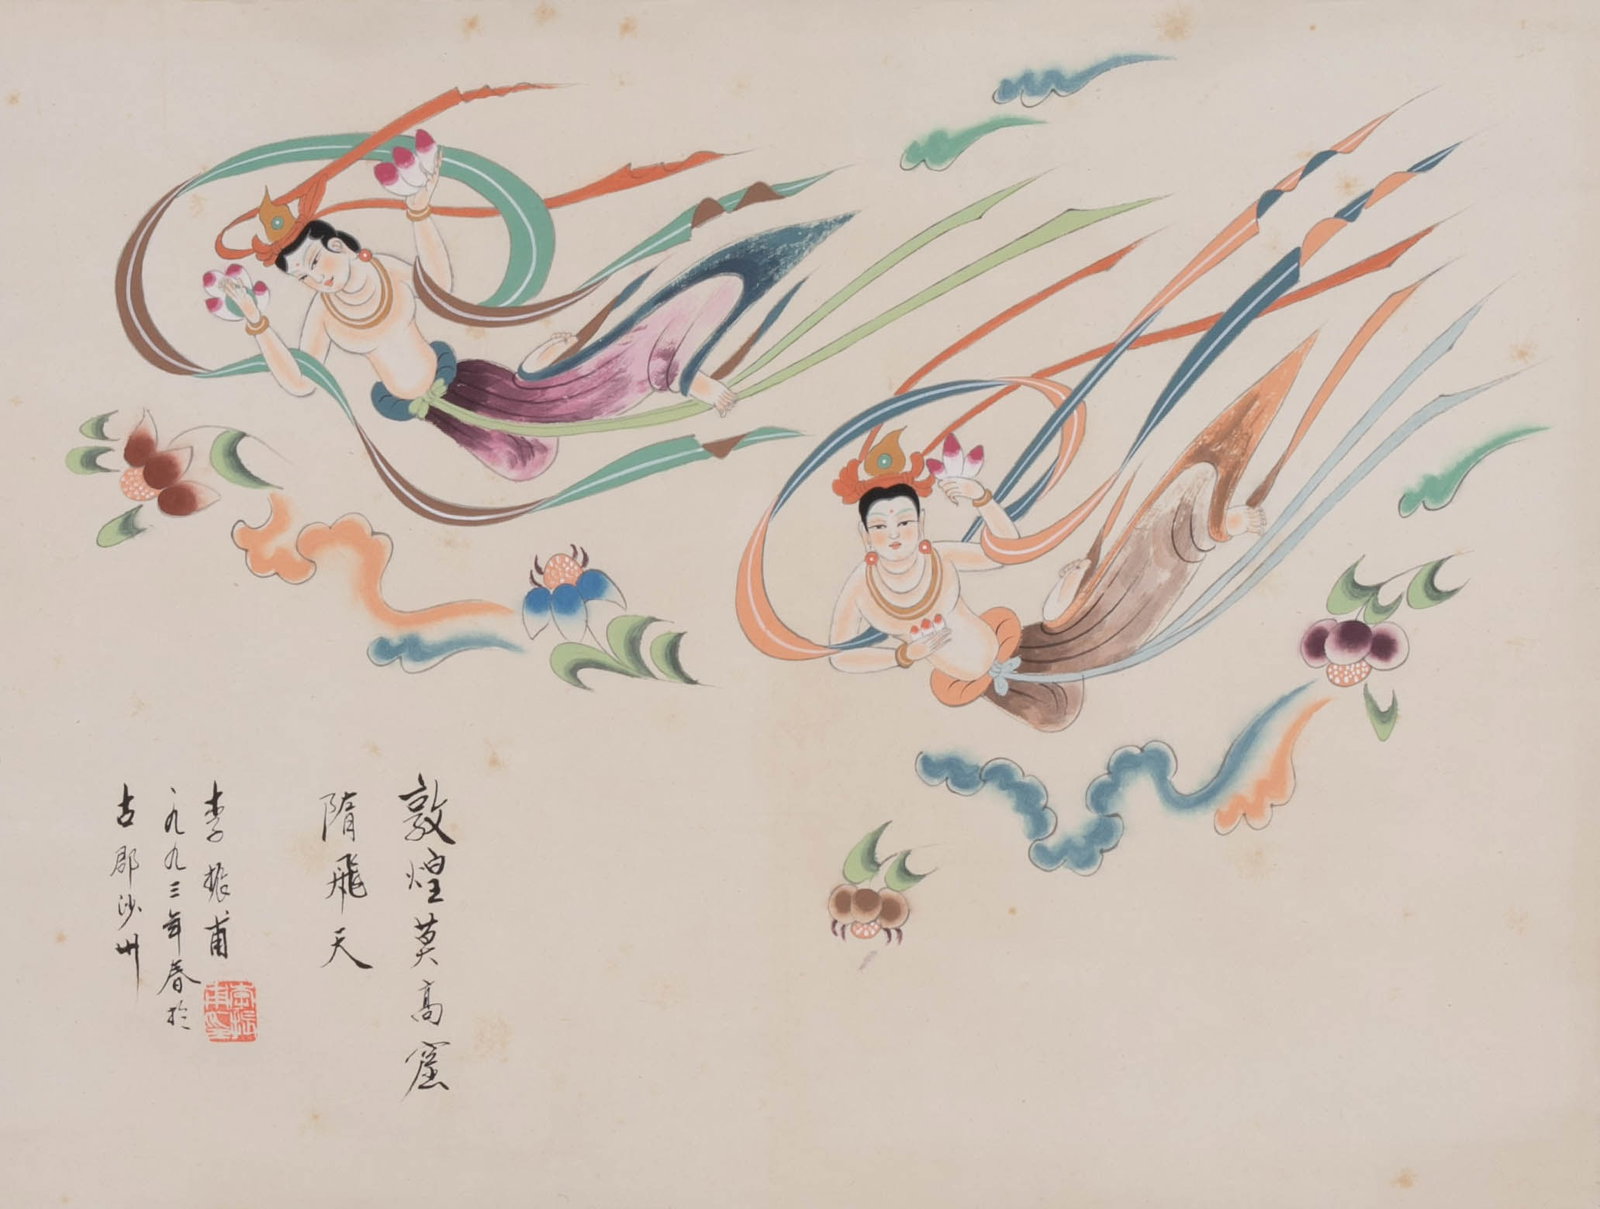 敦煌莫高窟
隋飛天
李振甫
一九九三年春於
古郡沙州
李振甫印